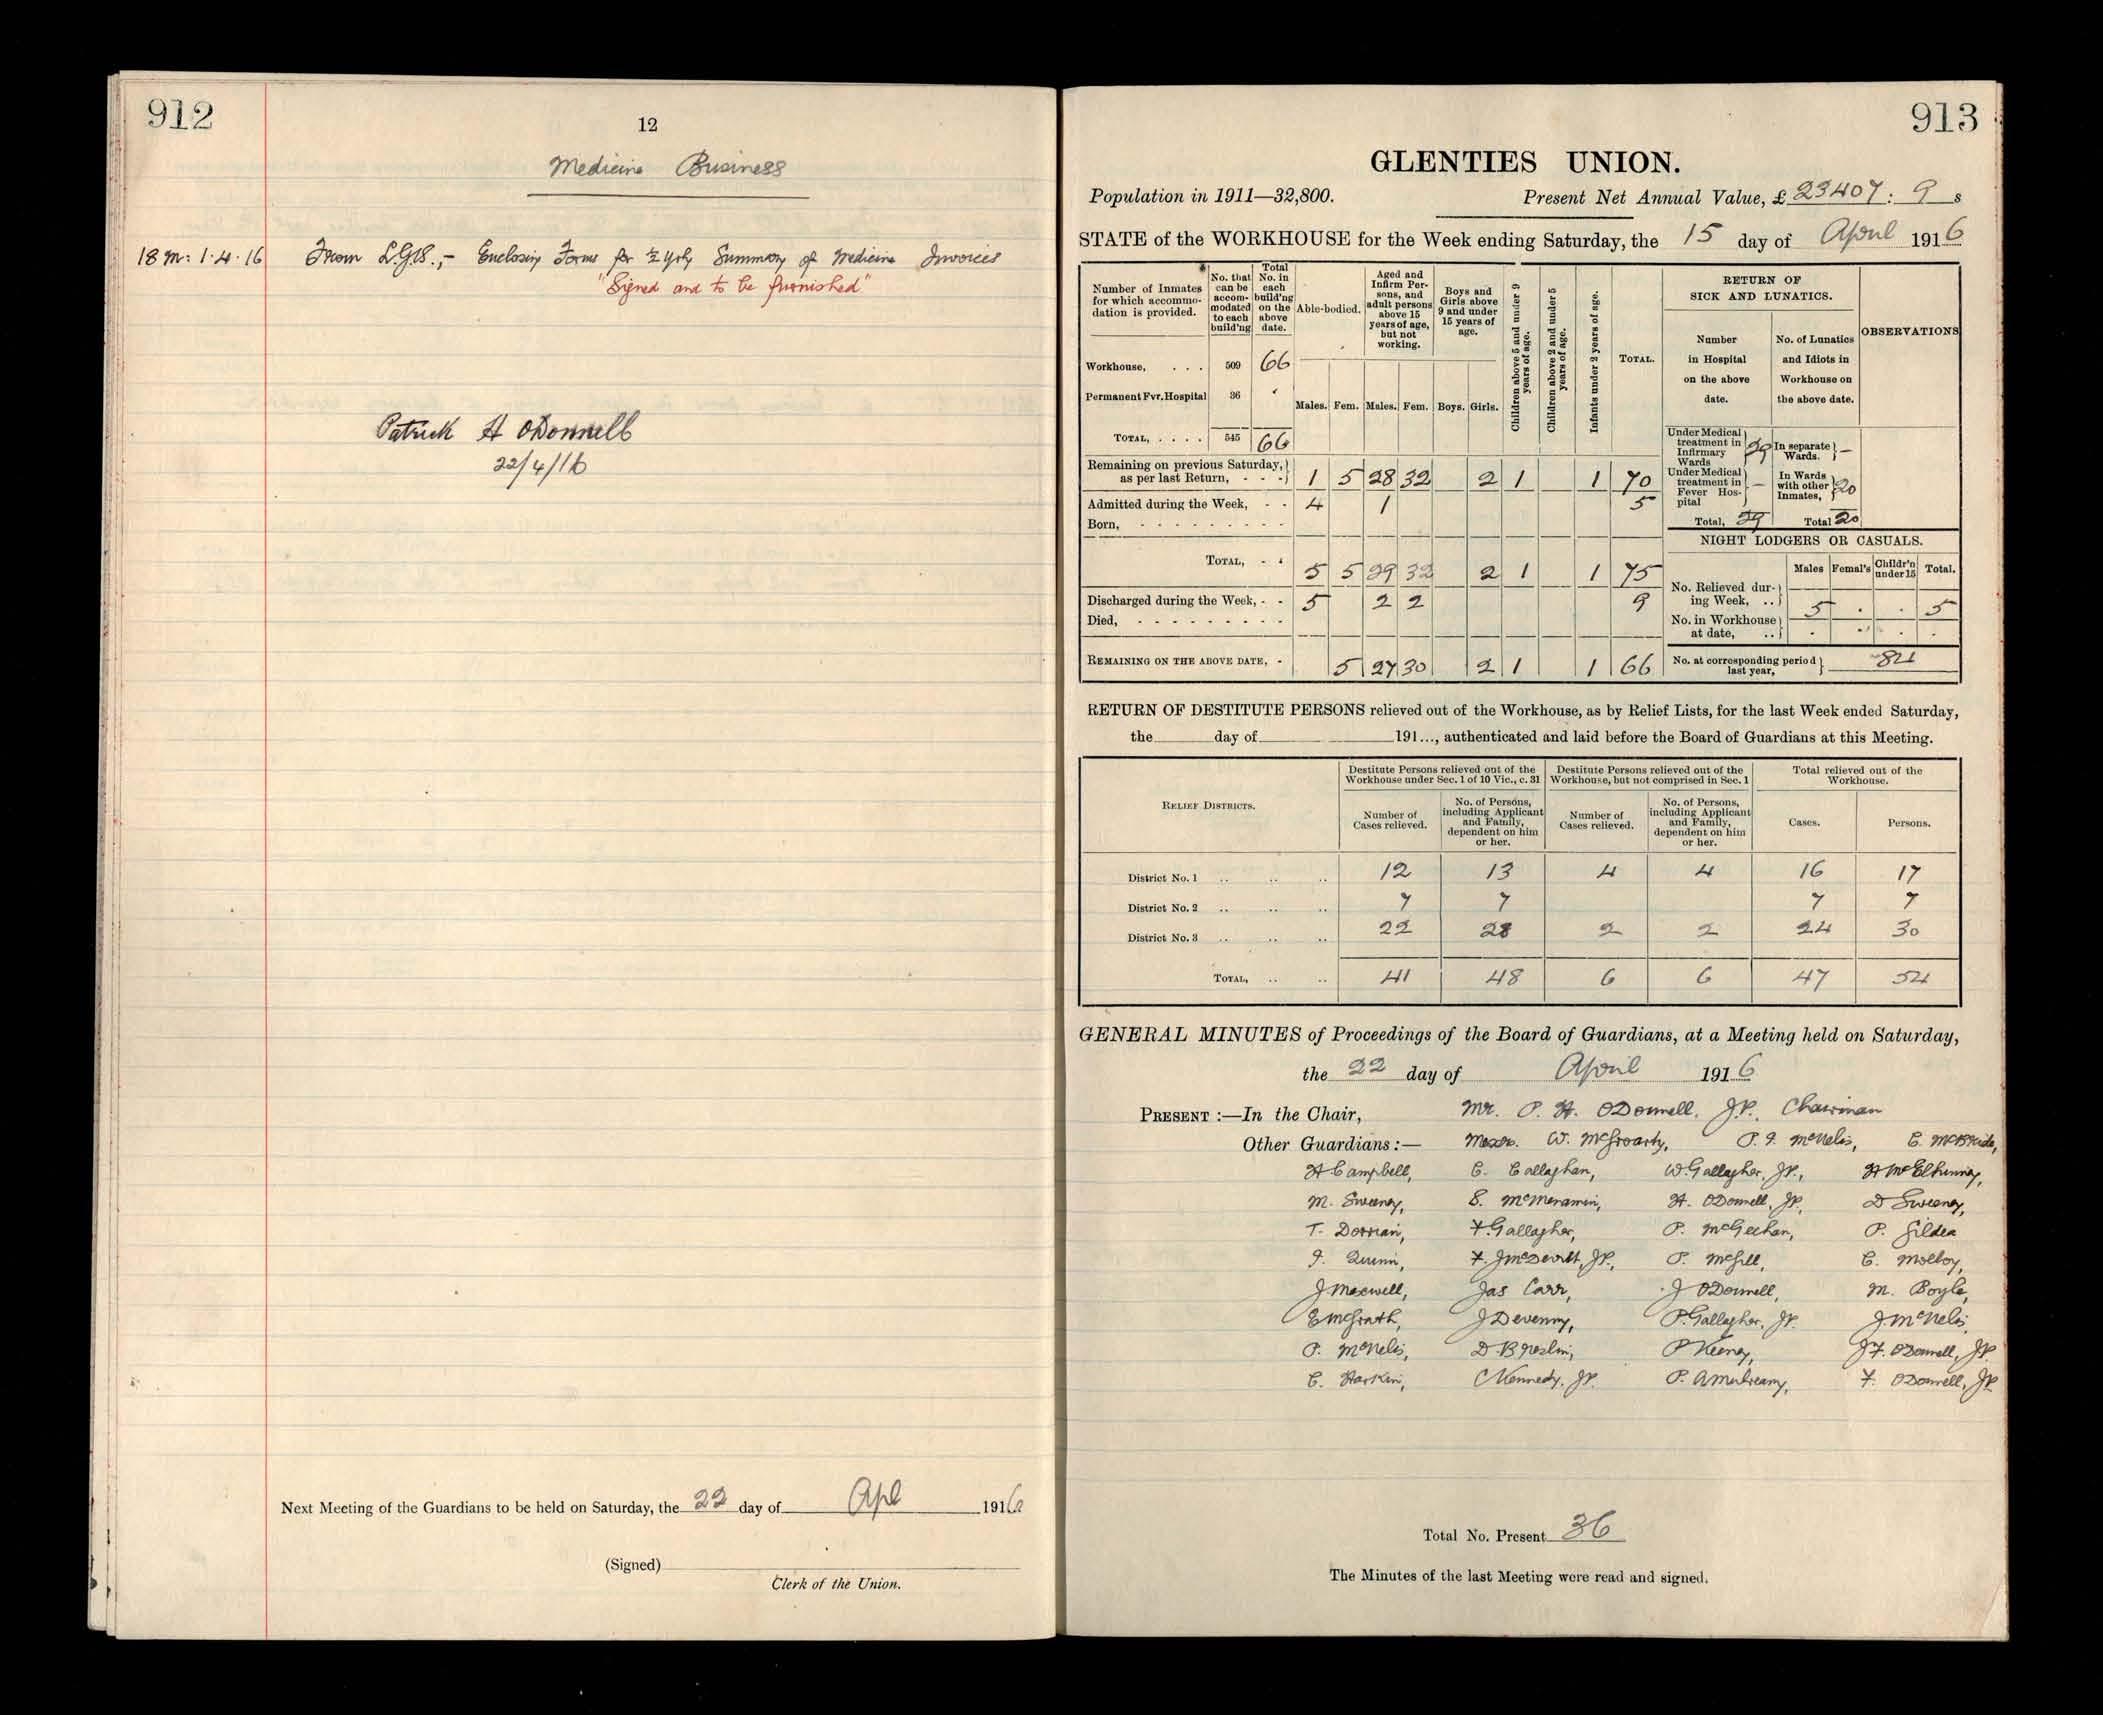 912
12
Medicine Business
18 M: 1.4.16 From L.G.B.,- Enclosing Forms for ½ Yrly Summary of Medicine Invoices
"Signed and to be furnished"
Patrick H ODonnell
22/4/16
Next Meeting of the Guardians to be held on Saturday, the 22 day of Apl 1916
(Signed)
Clerk of the Union.
913
GLENTIES UNION.
Population in 1911—32,800. Present Net Annual Value, £23407: 9 s
STATE of the WORKHOUSE for the Week ending Saturday, the 15 day of April 1916
Number of Inmates for which accommodation is provided.
No. that can be accommodated to each build'ng
Total No. in each build'ng on the above date.
Able-bodied.
Aged and Infirm Persons, and adult persons above 15 years of age, but not working.
Boys and Girls above 9 and under 15 years of age.
Children above 5 and under 9 years of age.
Children above 2 and under 5 years of age.
Infants under 2 years of age.
TOTAL.
RETURN OF SICK AND LUNATICS.
Number in Hospital on the above date.
No. of Lunatics and Idiots in Workhouse on the above date.
OBSERVATIONS
Workhouse, . . . 509 66
Permanent Fvr. Hospital 36
Males. Fem. Males. Fem. Boys. Girls.
TOTAL, . . . . 545 66
Remaining on previous Saturday, as per last Return, - - - 1 5 28 32 2 1 1 70
Admitted during the Week, - - 4 1 5
Born, - - - - - - - - -
TOTAL, - - 5 5 29 32 2 1 1 75
Discharged during the Week, - - 5 2 2 9
Died, - - - - - - - - -
REMAINING ON THE ABOVE DATE, - 5 27 30 2 1 1 66
Under Medical treatment in Infirmary Wards 29 In separate Wards. —
Under Medical treatment in Fever Hospital — In Wards with other Inmates, 20
Total, 29 Total 20
NIGHT LODGERS OR CASUALS.
Males Femal's Childr'n under 15 Total.
No. Relieved during Week, .. 5 . . 5
No. in Workhouse at date, .. . . . .
No. at corresponding period last year, 84
RETURN OF DESTITUTE PERSONS relieved out of the Workhouse, as by Relief Lists, for the last Week ended Saturday,
the day of 191..., authenticated and laid before the Board of Guardians at this Meeting.
RELIEF DISTRICTS.
Destitute Persons relieved out of the Workhouse under Sec. 1 of 10 Vic., c. 31
Destitute Persons relieved out of the Workhouse, but not comprised in Sec. 1
Total relieved out of the Workhouse.
Number of Cases relieved.
No. of Persons, including Applicant and Family, dependent on him or her.
Number of Cases relieved.
No. of Persons, including Applicant and Family, dependent on him or her.
Cases.
Persons.
District No. 1 .. .. .. 12 13 4 4 16 17
District No. 2 .. .. .. 7 7 7 7
District No. 3 .. .. .. 22 28 2 2 24 30
TOTAL, .. .. 41 48 6 6 47 54
GENERAL MINUTES of Proceedings of the Board of Guardians, at a Meeting held on Saturday,
the 22 day of April 1916
PRESENT :—In the Chair, Mr. P. H. ODonnell. J.P. Chairman
Other Guardians :— Messrs. W. McGroarty, P. J. McNelis, E. McBride,
H Campbell, C. Callaghan, W. Gallagher, J.P., H McElhinney,
M. Sweeney, E. McMenamin, H. ODonnell, J.P., D Sweeney,
T. Dorrian, F. Gallagher, P. McGeehan, P. Gildea
J. Quinn, F. J McDevitt, J.P., P. McGill, C. Molloy,
J. Maxwell, Jas Carr, J ODonnell, M. Boyle,
E McGrath, J Devenny, P. Gallagher, J.P. J. McNelis,
P. McNelis, D Breslin, P Keeney, J F. ODonnell, J.P.
C. Harkin, C Kennedy, J.P. P. A Mulreany, F. ODonnell, J.P.
Total No. Present 36
The Minutes of the last Meeting were read and signed.